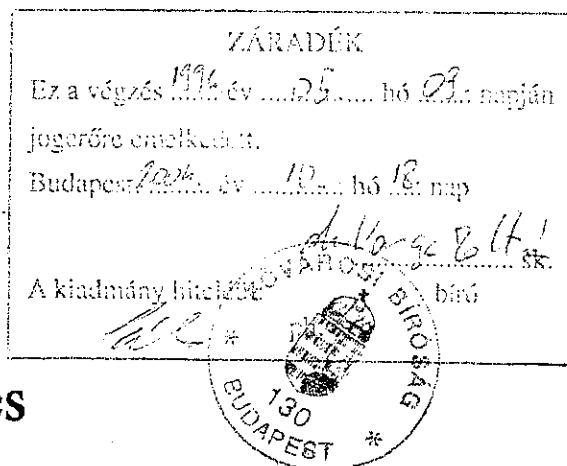 ZÁRADÉK
Ez a végzés 1996 év ....05...... hó .09.: napján
jogerőre emelkedett.
Budapest 2004. év ....10...: hó .18: nap
.......... sk.
A kiadmány hiteléül: bíró
FŐVÁROSI BÍRÓSÁG
130
BUDAPEST *